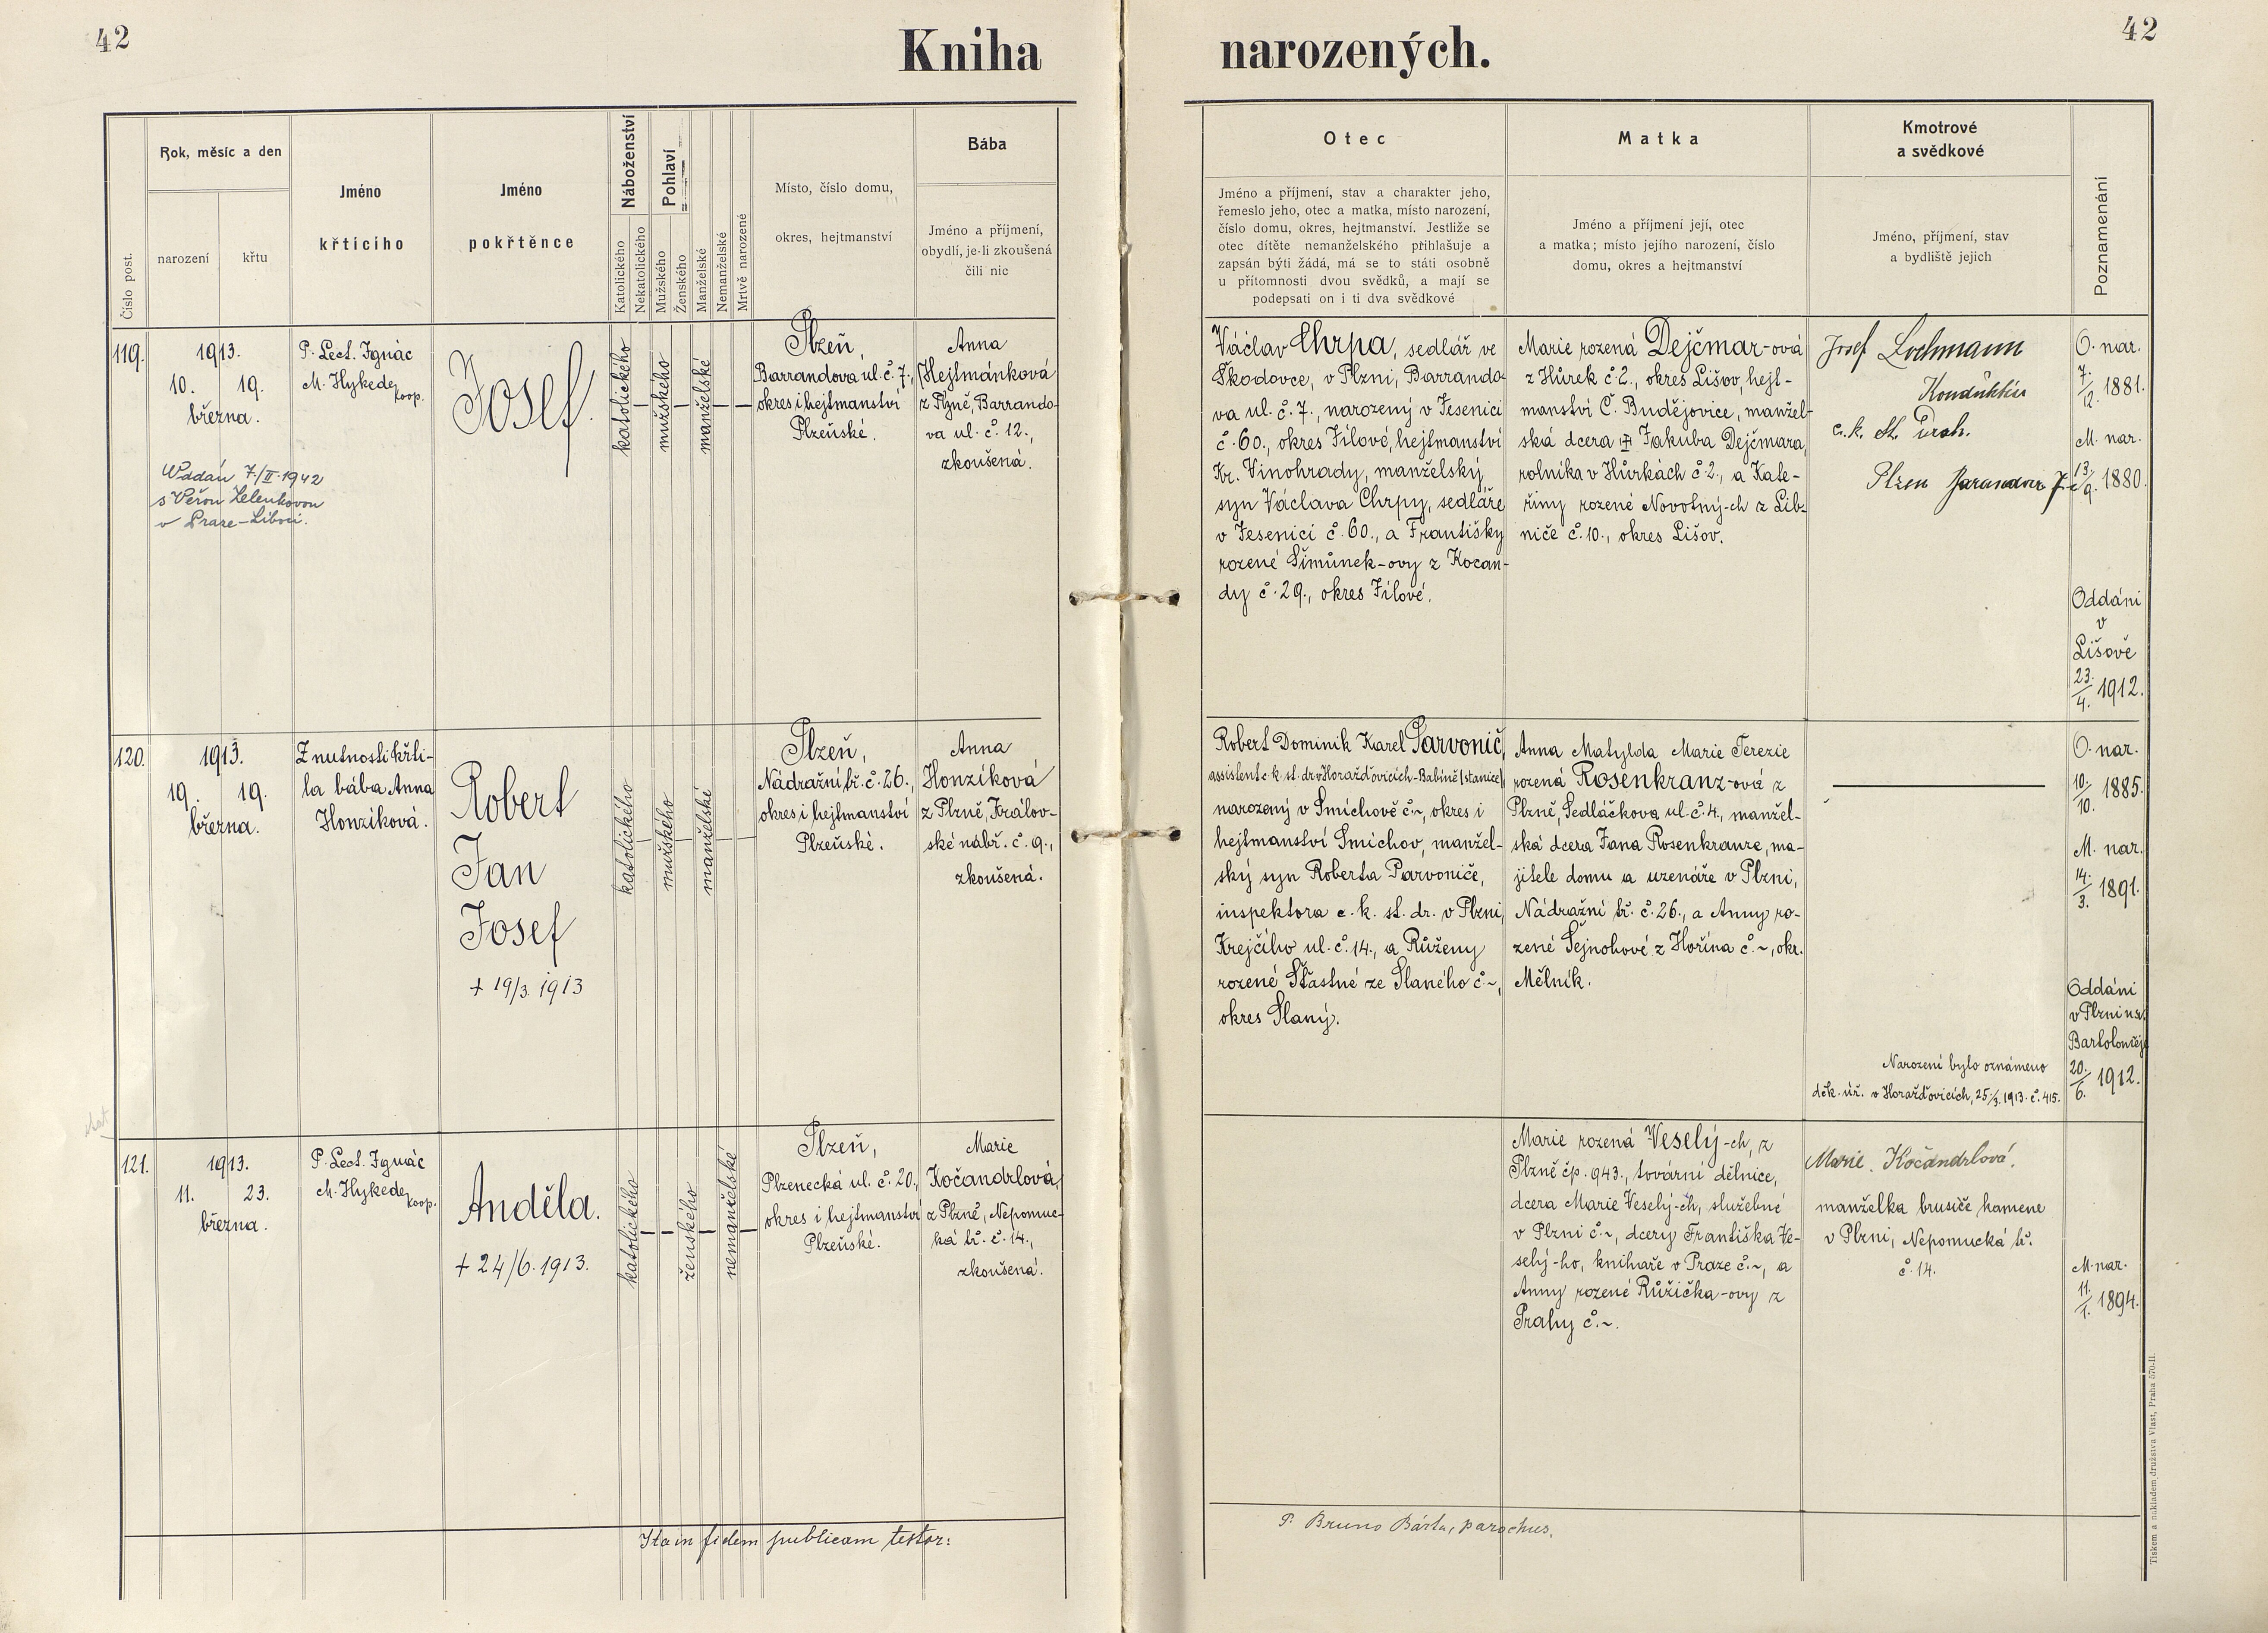 42
Kniha narozených.
42
Číslo post.
Rok, měsíc a den
narození
křtu
Jméno
křticího
Jméno
pokřtěnce
Náboženství
Katolického
Nekatolického
Pohlaví
Mužského
Ženského
Manželské
Nemanželské
Mrtvě narozené
Místo, číslo domu,
okres, hejtmanství
Bába
Jméno a příjmení,
obydlí, je-li zkoušená
čili nic
Otec
Jméno a příjmení, stav a charakter jeho,
řemeslo jeho, otec a matka, místo narození,
číslo domu, okres, hejtmanství. Jestliže se
otec dítěte nemanželského přihlašuje a
zapsán býti žádá, má se to státi osobně
u přítomnosti dvou svědků, a mají se
podepsati on i ti dva svědkové
Matka
Jméno a příjmení její, otec
a matka; místo jejího narození, číslo
domu, okres a hejtmanství
Kmotrové
a svědkové
Jméno, příjmení, stav
a bydliště jejich
Poznamenání
119.
1913.
10. 19.
března.
Oddán 7/II. 1942
s Věrou Zelenkovou
v Praze-Liboci.
P. Lect. Ignác
M. Hykede,
koop.
Josef.
katolického
mužského
manželské
Plzeň,
Barrandova ul. č. 7.,
okres i hejtmanství
Plzeňské.
Anna
Hejtmánková
z Plzně, Barrando-
va ul. č. 12.,
zkoušená.
Václav Chrpa, sedlář ve
Škodovce, v Plzni, Barrando-
va ul. č. 7., narozený v Jesenici
č. 60., okres Jílové, hejtmanství
Kr. Vinohrady, manželský
syn Václava Chrpy, sedláře
v Jesenici č. 60., a Františky
rozené Šimůnek-ovy z Kocan-
dy č. 29., okres Jílové.
Marie rozená Dejčmar-ová
z Hůrek č. 2., okres Lišov, hejt-
manství Č. Budějovice, manžel-
ská dcera Jakuba Dejčmara,
rolníka v Hůrkách č. 2., a Kate-
řiny rozené Novotný-ch z Lib-
niče č. 10., okres Lišov.
Josef Lochmann
Konduktér
c. k. st. drah.
Plzen Barandova 7
O. nar.
7./12. 1881.
M. nar.
13./9. 1880.
Oddáni
v
Lišově
23./4. 1912.
120.
1913.
19. 19.
března.
Z nutnosti křti-
la bába Anna
Honzíková.
Robert
Jan
Josef
+ 19/3. 1913
katolického
mužského
manželské
Plzeň,
Nádražní tř. č. 26.,
okres i hejtmanství
Plzeňské.
Anna
Honzíková
z Plzně, Králov-
ské nábř. č. 9.,
zkoušená.
Robert Dominik Karel Parvonič,
assistent c. k. st. dr. v Horažďovicích-Babíně (stanice)
narozený v Smíchově č. ~, okres i
hejtmanství Smíchov, manžel-
ský syn Roberta Parvoniče,
inspektora c. k. st. dr. v Plzni,
Krejčího ul. č. 14., a Růženy
rozené Šťastné ze Slaného č. ~,
okres Slaný.
Anna Matylda Marie Terezie
rozená Rosenkranz-ová z
Plzně, Sedláčkova ul. č. 4., manžel-
ská dcera Jana Rosenkranze, ma-
jitele domu a uzenáře v Plzni,
Nádražní tř. č. 26., a Anny ro-
zené Šejnohové z Hořína č. ~, okr.
Mělník.
Narození bylo oznámeno
děk. úř. v Horažďovicích, 25./3. 1913. č. 415.
O. nar.
10./10. 1885.
M. nar.
14./3. 1891.
Oddáni
v Plzni u sv.
Bartoloměje
20./6. 1912.
121.
1913.
11. 23.
března.
P. Lect. Ignác
M. Hykede,
koop.
Anděla.
+ 24/6. 1913.
katolického
ženského
nemanželské
Plzeň,
Plzenecká ul. č. 20.,
okres i hejtmanství
Plzeňské.
Marie
Kočandrlová,
z Plzně, Nepomuc-
ká tř. č. 14.,
zkoušená.
Marie rozená Veselý-ch, z
Plzně čp. 943., tovární dělnice,
dcera Marie Veselý-ch, služebné
v Plzni č. ~, dcery Františka Ve-
selý-ho, knihaře v Praze č. ~, a
Anny rozené Růžička-ovy z
Prahy č. ~.
Marie Kočandrlová,
manželka brusiče kamene
v Plzni, Nepomucká tř.
č. 14.
M. nar.
11./1. 1894.
Ita in fidem publicam testor:
P. Bruno Bárta, parochus.
Tiskem a nákladem družstva Vlast, Praha 570-II.